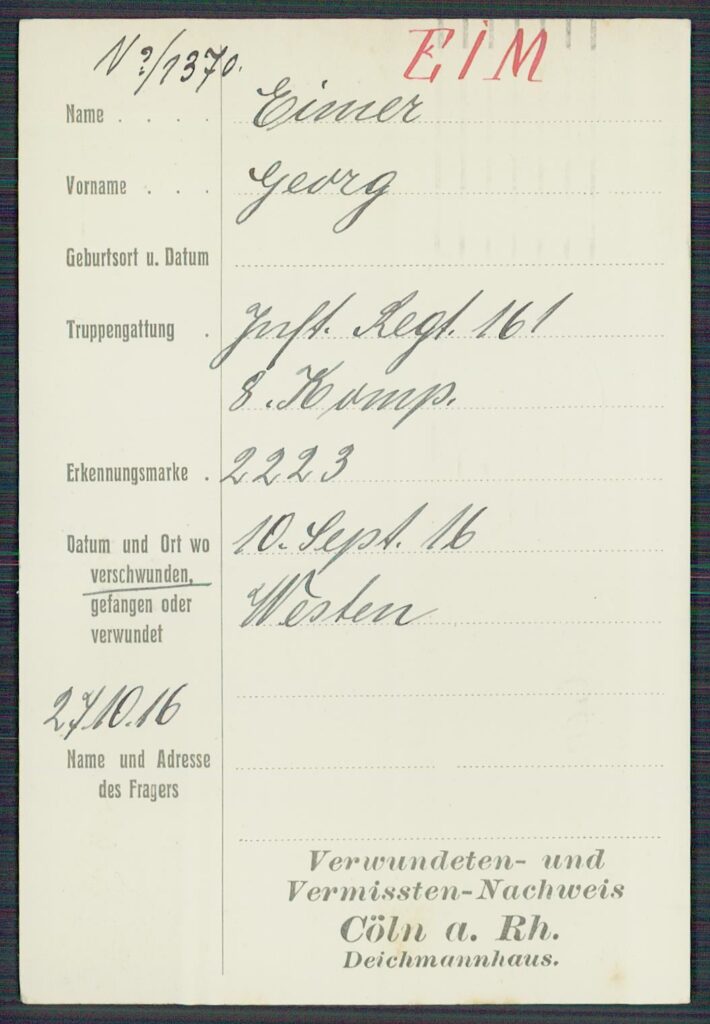 EIM
N?/1370.
Name . . . . Eimer
Vorname . . . Georg
Geburtsort u. Datum
Truppengattung . Inft. Regt. 161
8. Komp.
Erkennungsmarke . 2223
Datum und Ort wo 10. Sept. 16
verschwunden,
gefangen oder Westen
verwundet
27/10.16
Name und Adresse
des Fragers
Verwundeten- und
Vermissten-Nachweis
Cöln a. Rh.
Deichmannhaus.